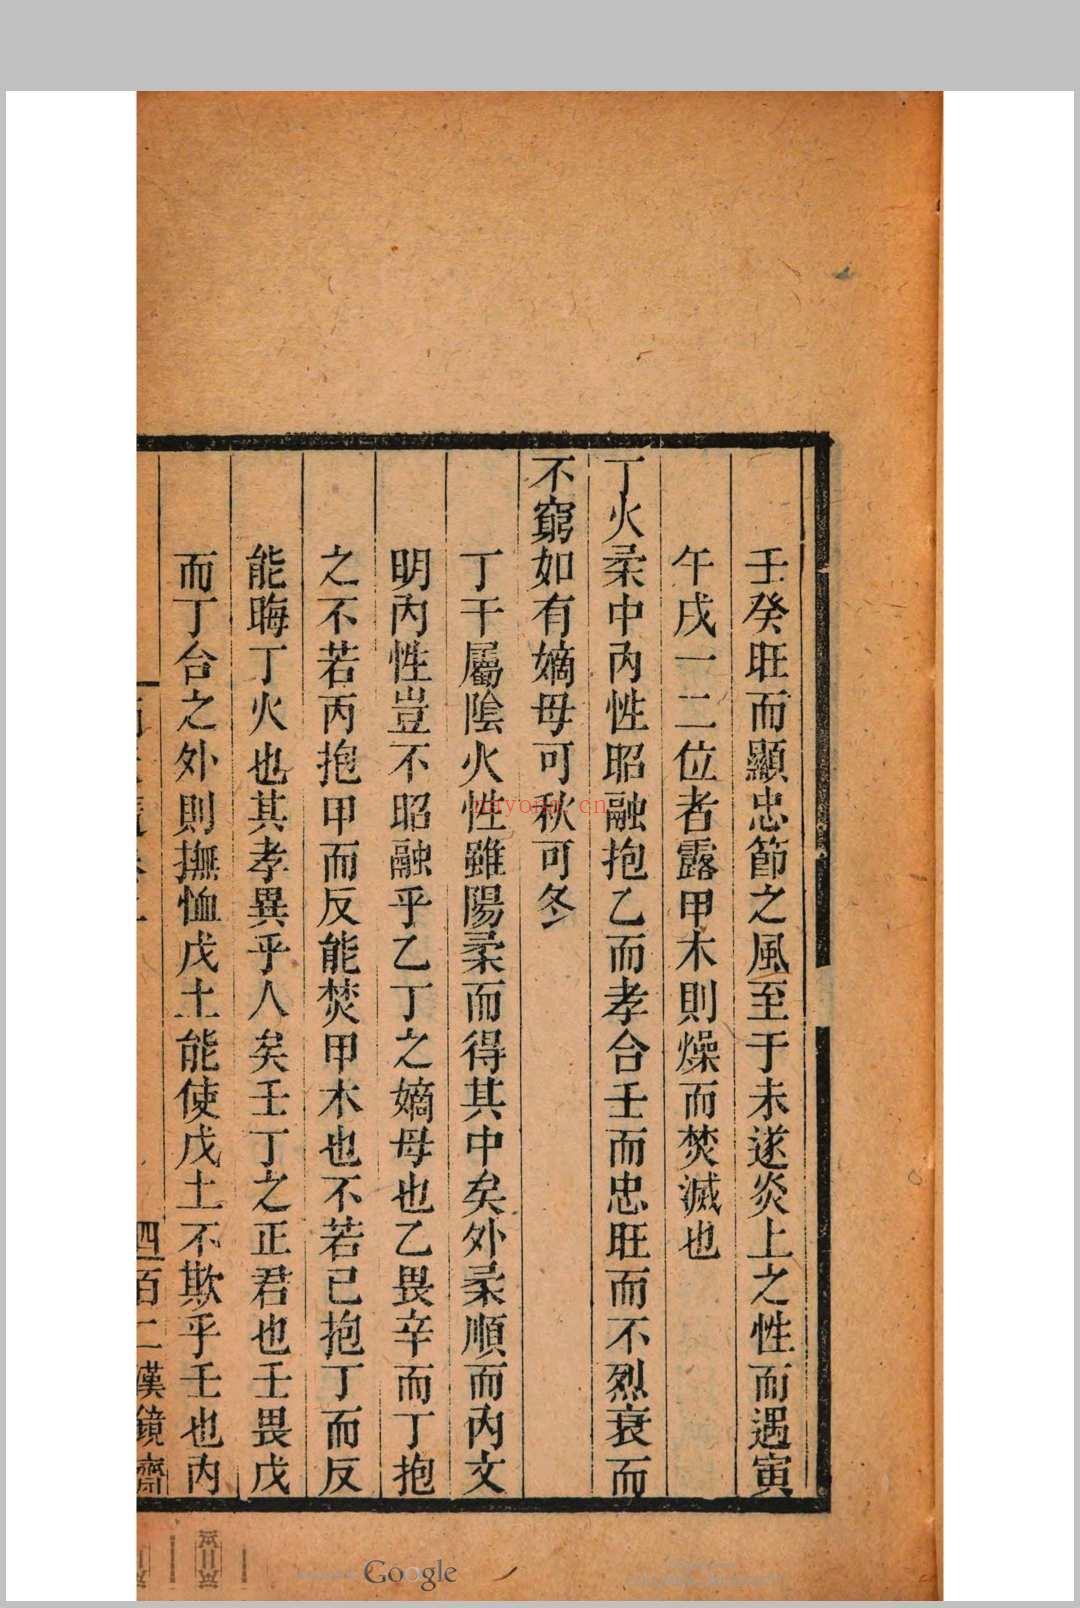 壬癸旺而顯忠節之風至于未遂炎上之性而遇寅
午戌一二位者露甲木則燥而焚滅也
丁火柔中內性昭融抱乙而孝合壬而忠旺而不烈衰而
不窮如有嫡母可秋可冬
丁干屬陰火性雖陽柔而得其中矣外柔順而內文
明內性豈不昭融乎乙丁之嫡母也乙畏辛而丁抱
之不若丙抱甲而反能焚甲木也不若己抱丁而反
能晦丁火也其孝異乎人矣壬丁之正君也壬畏戊
而丁合之外則撫恤戊土能使戊土不欺乎壬也內
四百二漢鏡齋
nayona.cn
Google